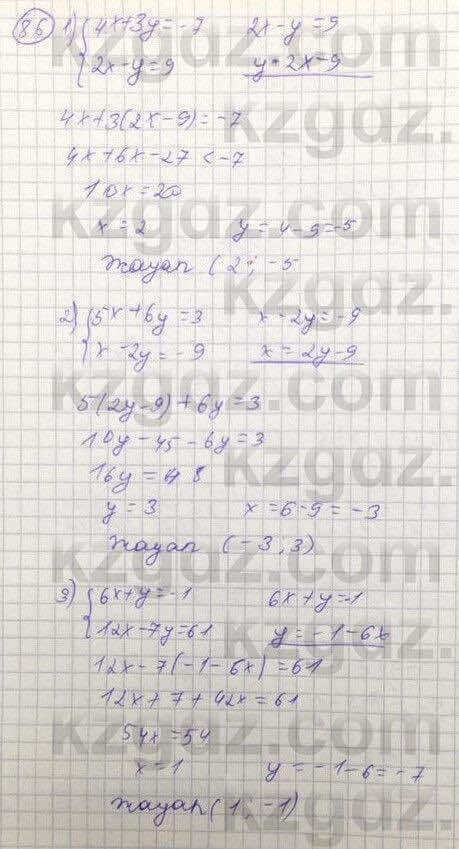 86 1) {4x+3y=-7   2x-y=9
{2x-y=9   y=2x-9
4x+3(2x-9)=-7
4x+6x-27<-7
10x=20
x=2   y=4-9=-5
Жауап (2; -5
2) {5x+6y=3   x-2y=-9
{x-2y=-9   x=2y-9
5(2y-9)+6y=3
10y-45-6y=3
16y=48
y=3   x=6-9=-3
Жауап (-3;3)
3) {6x+y=-1   6x+y=-1
{12x-7y=61   y=-1-6x
12x-7(-1-6x)=61
12x+7+42x=61
54x=54
x=1   y=-1-6=-7
Жауап (1; -1)
kzgdz.com
kzgdz.com
kzgdz.com
kzgdz.com
kzgdz.com
kzgdz.com
kzgdz.com